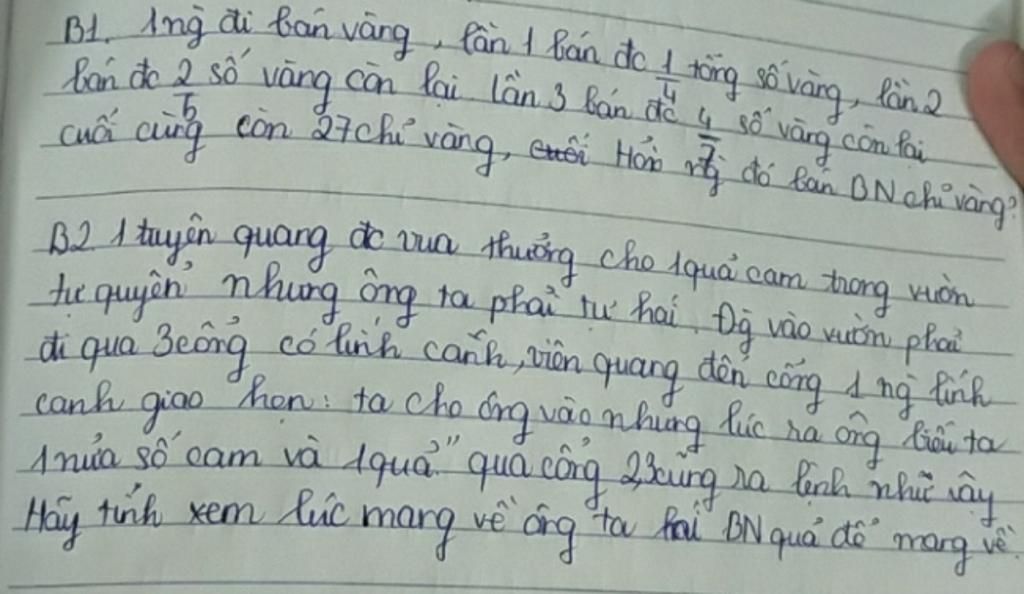 B1. 1ng đi bán vàng, lần 1 bán đc 1/4 tổng số vàng, lần 2
bán đc 2/5 số vàng còn lại lần 3 bán đc 4/7 số vàng còn lại
cuối cùng còn 27 chỉ vàng, cuối Hỏi ng đó bán BN chỉ vàng?
B2 1 tuyên quang đc vua thưởng cho 1 quả cam trong vườn
tự quyển nhưng ông ta phải tự hái. Đg vào vườn phải
đi qua 3 cổng có lính canh, viên quang đến cổng 1 ng lính
canh giao hẹn: ta cho ông vào nhưng lúc ra ông biếu ta
1 nửa số cam và 1 quả" qua cổng 2,3 cũng ra lệnh như vậy
Hãy tính xem lúc mang về ông ta hái BN quả để mang về.